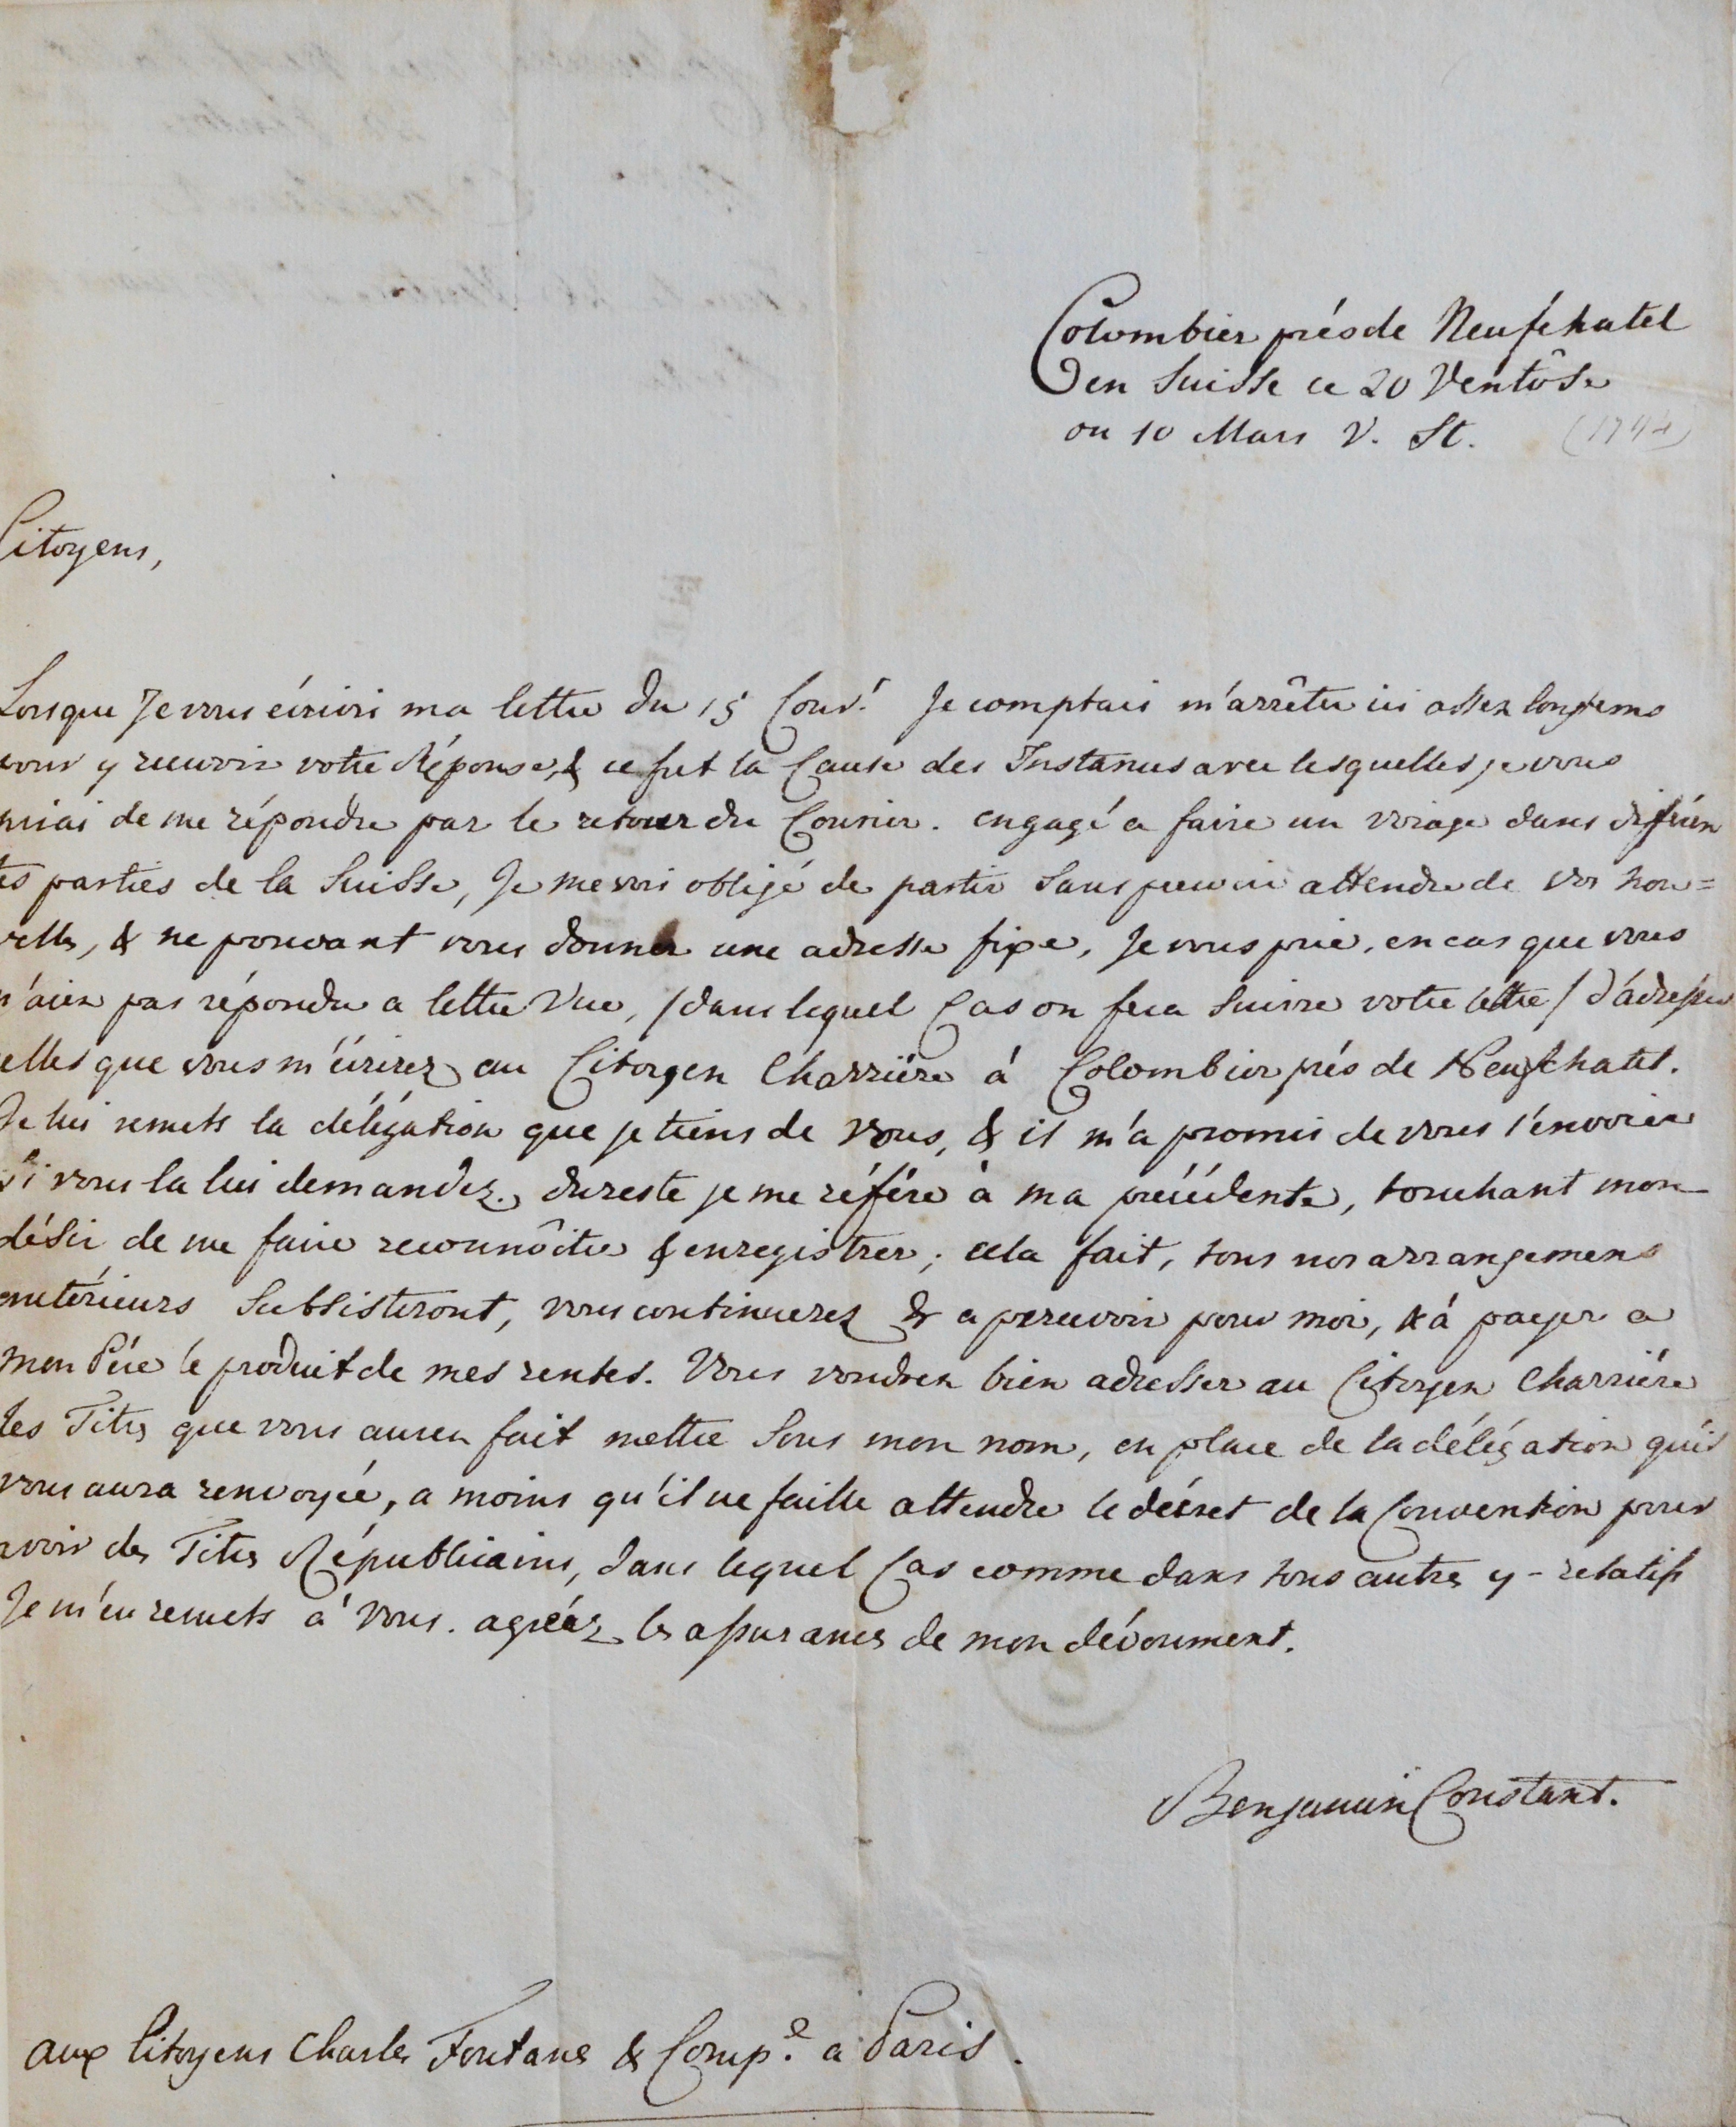 Colombier prés de Neufchatel
en Suisse ce 20 Ventôse
ou 10 Mars V. St.
Citoyens,
Lorsque Je vous écrivis ma lettre du 15 Cour.t Je comptais m'arrêter ici assez longtems
pour y recevoir votre Réponse, & ce fut la Cause des Instances avec lesquelles je vous
priai de me répondre par le retour du Courier. engagé a faire un voiage dans diféren
tes parties de la Suisse, Je me vois obligé de partir Sans pouvoir attendre de vos nou=
velles, & ne pouvant vous donner une adresse fixe, Je vous prie, en cas que vous
n'aiez pas répondu a lettre Vue, /dans lequel Cas on fera Suivre votre lettre/ d'adresser
celles que vous m'écrirez au Citoyen Charriére á Colombier prés de Neufchatel.
Je lui remets la délégation que je tiens de Vous, & il m'a promis de vous l'envoier
Si vous la lui demandez. du reste je me référe à ma précédente, touchant mon
désir de me faire reconnôitre & enregistrer; cela fait, tous nos arrangemens
antérieurs Subsisteront, vous continuerez & a percevoir pour moi, & à payer a
Mon Pére le produit de mes rentes. Vous voudrez bien adresser au Citoyen Charriére
les Titres que vous aurez fait mettre Sous mon nom, en place de la délégation qu'il
vous aura renvoyée, a moins qu'il ne faille attendre le décret de la Convention pour
avoir des Titres Républicains, dans lequel Cas comme dans tous autres y-relatifs
Je m'en remets á Vous. agréez les assurances de mon dévoument.
Benjamin Constant.
aux Citoyens Charles Fontane & Comp.e a Paris.